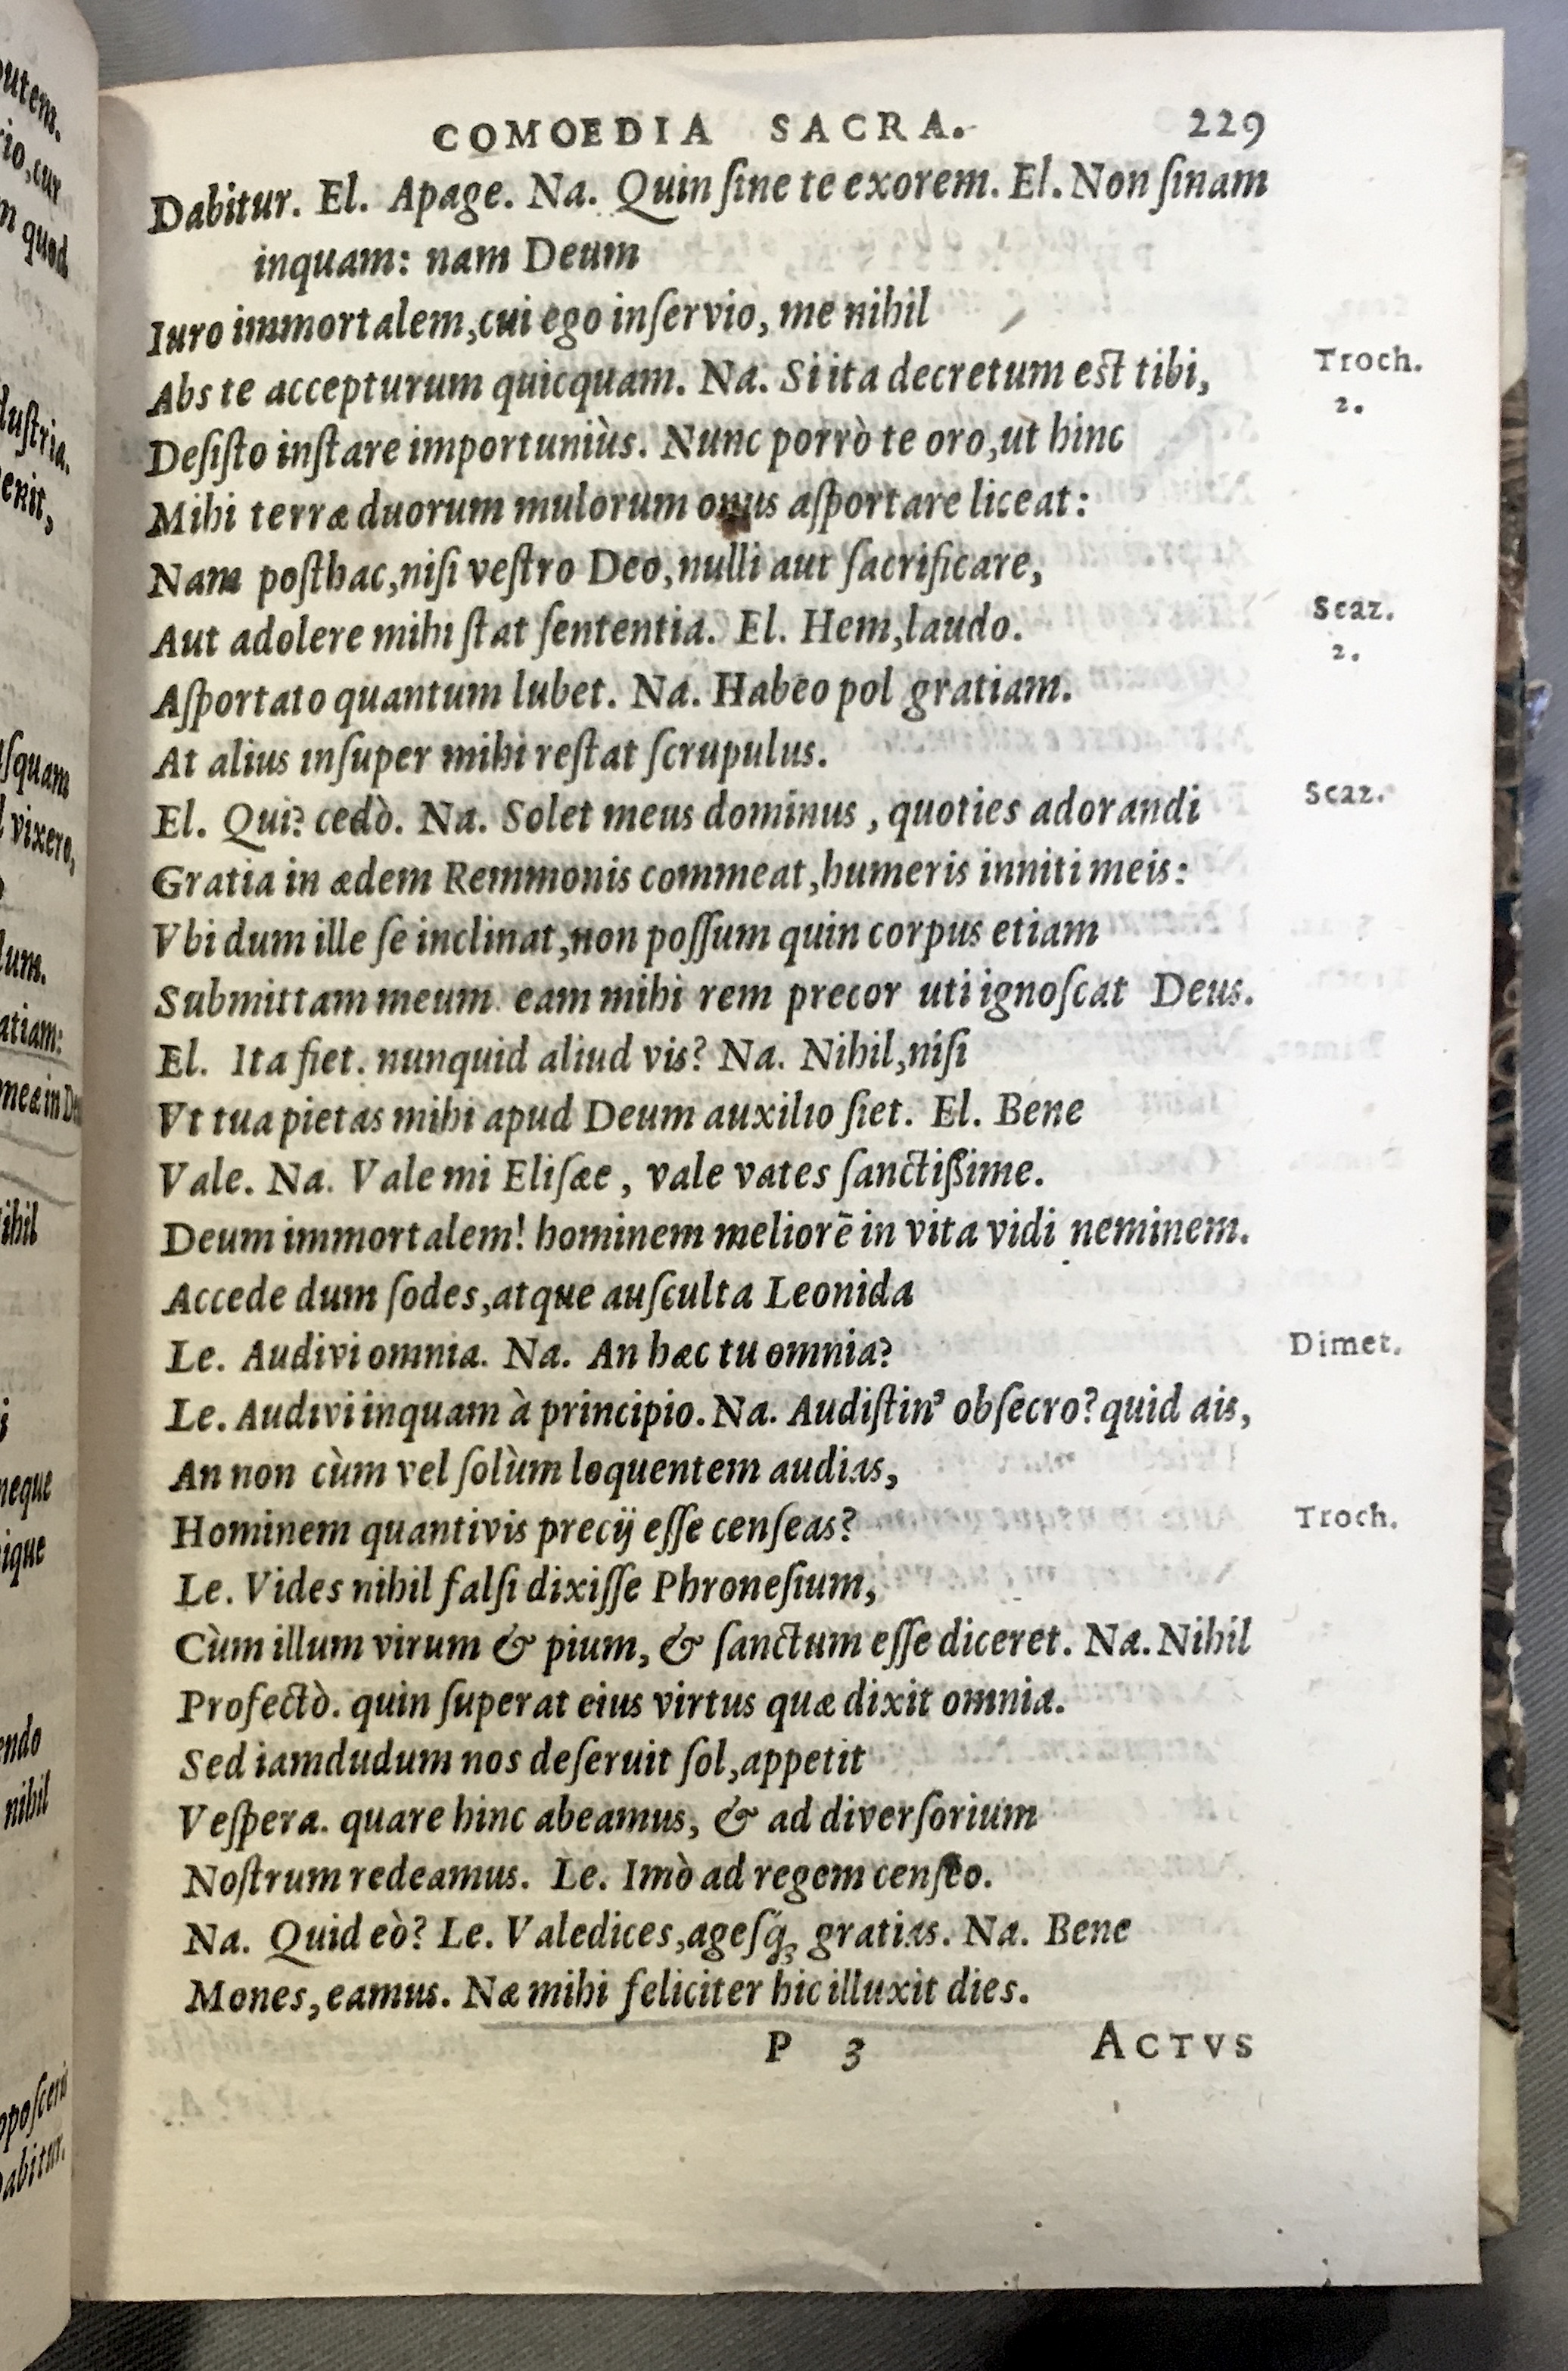 COMOEDIA SACRA. 229
Dabitur. El. Apage. Na. Quin ſine te exorem. El. Non ſinam
inquam: nam Deum
Iuro immortalem, cui ego inſervio, me nihil
Abs te accepturum quicquam. Na. Si ita decretum est tibi, Troch.
2.
Deſiſto inſtare importuniùs. Nunc porrò te oro, ut hinc
Mihi terræ duorum mulorum onus aſportare liceat:
Nam poſthac, niſi veſtro Deo, nulli aut ſacrificare,
Aut adolere mihi ſtat ſententia. El. Hem, laudo. Scaz.
2.
Aſportato quantum lubet. Na. Habeo pol gratiam.
At alius inſuper mihi reſtat ſcrupulus.
El. Qui? cedò. Na. Solet meus dominus, quoties adorandi Scaz.
Gratia in ædem Remmonis commeat, humeris inniti meis:
Vbi dum ille ſe inclinat, non poſſum quin corpus etiam
Submittam meum. eam mihi rem precor uti ignoſcat Deus.
El. Ita fiet. nunquid aliud vis? Na. Nihil, niſi
Vt tua pietas mihi apud Deum auxilio ſiet. El. Bene
Vale. Na. Vale mi Eliſæe, vale vates ſanctißime.
Deum immortalem! hominem meliorē in vita vidi neminem.
Accede dum ſodes, atque auſculta Leonida
Le. Audivi omnia. Na. An hæc tu omnia? Dimet.
Le. Audivi inquam à principio. Na. Audiſtin' obſecro? quid ais,
An non cùm vel ſolùm loquentem audias,
Hominem quantivis precij eſſe cenſeas? Troch.
Le. Vides nihil falſi dixiſſe Phroneſium,
Cùm illum virum & pium, & ſanctum eſſe diceret. Na. Nihil
Profectò. quin ſuperat eius virtus quæ dixit omnia.
Sed iamdudum nos deſeruit ſol, appetit
Veſpera. quare hinc abeamus, & ad diverſorium
Noſtrum redeamus. Le. Imò ad regem cenſeo.
Na. Quid eò? Le. Valedices, ageſq́; gratias. Na. Bene
Mones, eamus. Næ mihi feliciter hic illuxit dies.
P 3 ACTVS